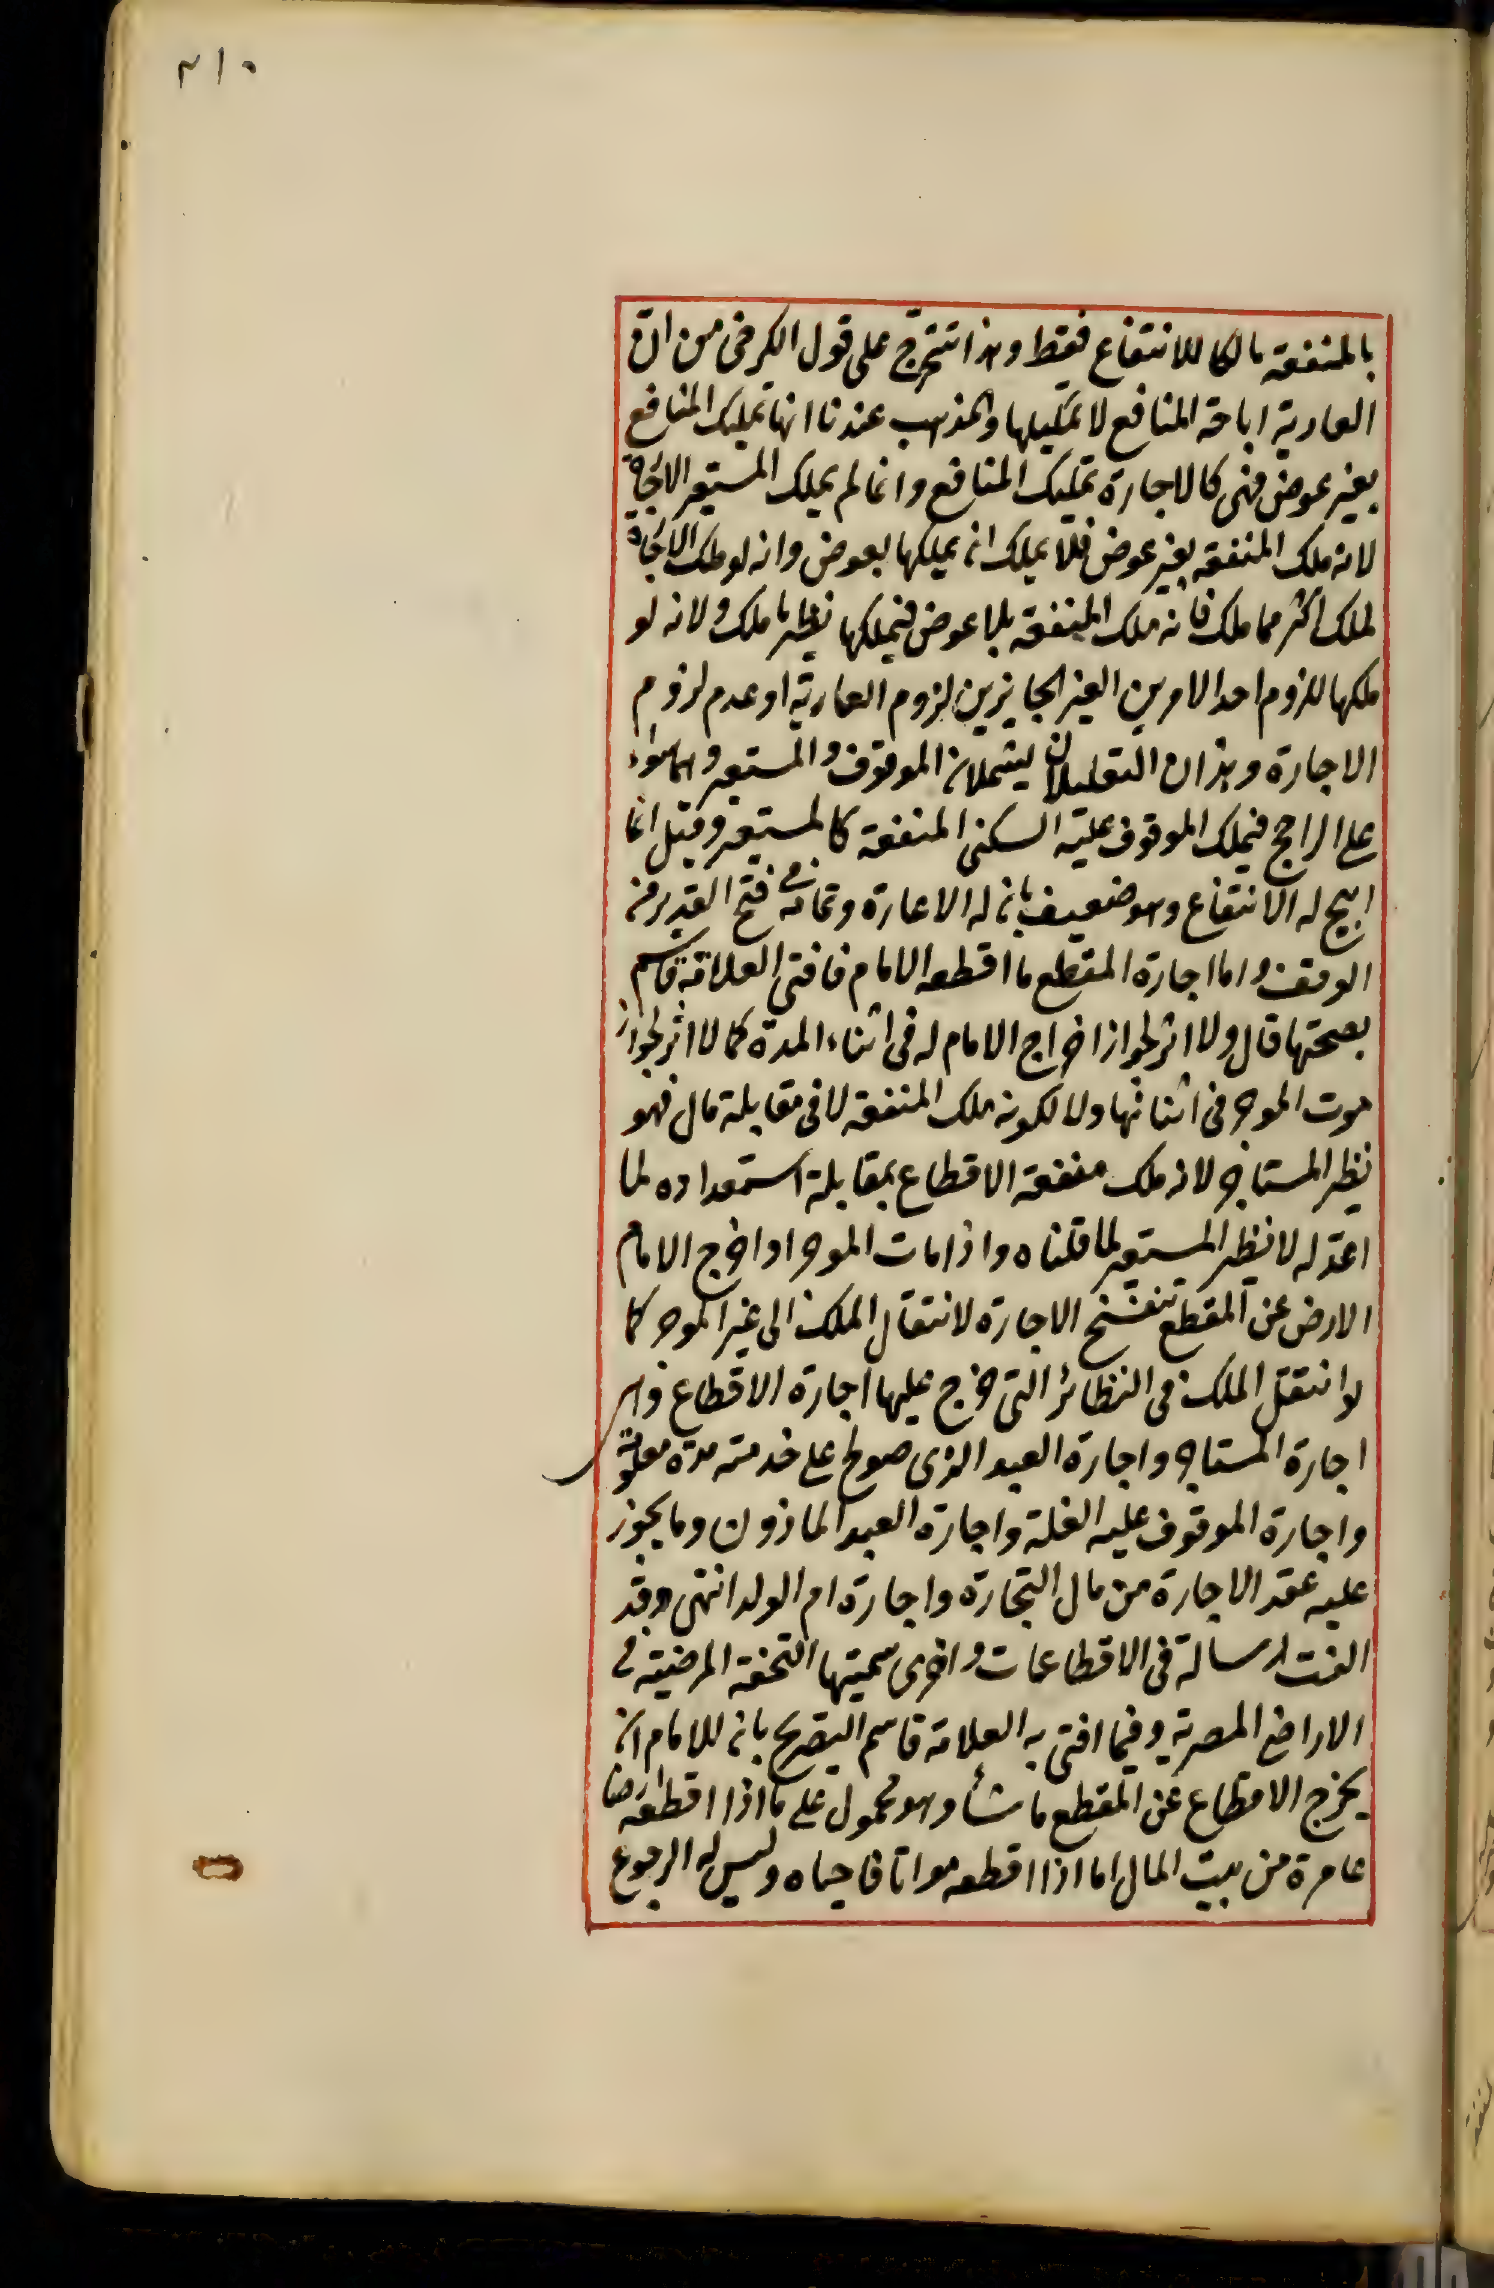 ٢١٠
بالمنفعة مالكا للانتفاع فقط وهذا تتخرج على قول الكرخى من ان
العارية اباحة المنافع لا تمليكها والمذهب عندنا انها تمليك المنافع
بغير عوض فهى كالاجارة تمليك المنافع وانما لم يملك المستعير الاجارة
لانه ملك المنفعة بغير عوض فلا يملك ان يملكها بعوض وانه لو ملك الاجارة
لملك اكثر مما ملك فانه ملك المنفعة بلا عوض فيملكها نظير ما ملك ولانه لو
ملكها للزوم احد الامرين الغير الجايزين لزوم العارية او عدم لزوم
الاجارة وهذان التعليلان يشملان الموقوف والمستعير وهما سواء
على الراجح فيملك الموقوف عليه السكنى المنفعة كالمستعير وقيل انما
ابيح له الانتفاع وهو ضعيف بان له الاعارة وتمامه فى فتح القدير من
الوقف واما اجارة المقطع ما اقطعه الامام فافتى العلامة قاسم
بصحتها قال ولا اثر لجواز اخراج الامام له فى اثناء المدة كما لا اثر لجواز
موت الموجر فى اثنائها ولا لكونه ملك المنفعة لا فى مقابلة مال فهو
نظير المستاجر لانه ملك منفعة الاقطاع بمقابلة استعداده لما
اعد له لا نظير المستعير لما قلناه واذا مات الموجر او اخرج الامام
الارض عن المقطع تنفسخ الاجارة لانتقال الملك الى غير الموجر كما
لو انتقل الملك فى النظائر التى خرج عليها اجارة الاقطاع وهى
اجارة المستاجر واجارة العبد الذى صولح على خدمته مدة معلومة
واجارة الموقوف عليه الغلة واجارة العبد الماذون وما يجوز
عليه عقد الاجارة من مال التجارة واجارة ام الولد انتهى وقد
الفت رسالة فى الاقطاعات واخرى سميتها التحفة المرضية فى
الاراضى المصرية وفيما افتى به العلامة قاسم التصريح بان للامام ان
يخرج الاقطاع عن المقطع ما شأ وهو محمول على ما اذا اقطعه ارضا
عامرة من بيت المال اما اذا اقطعه مواتا فاحياه وليس له الرجوع